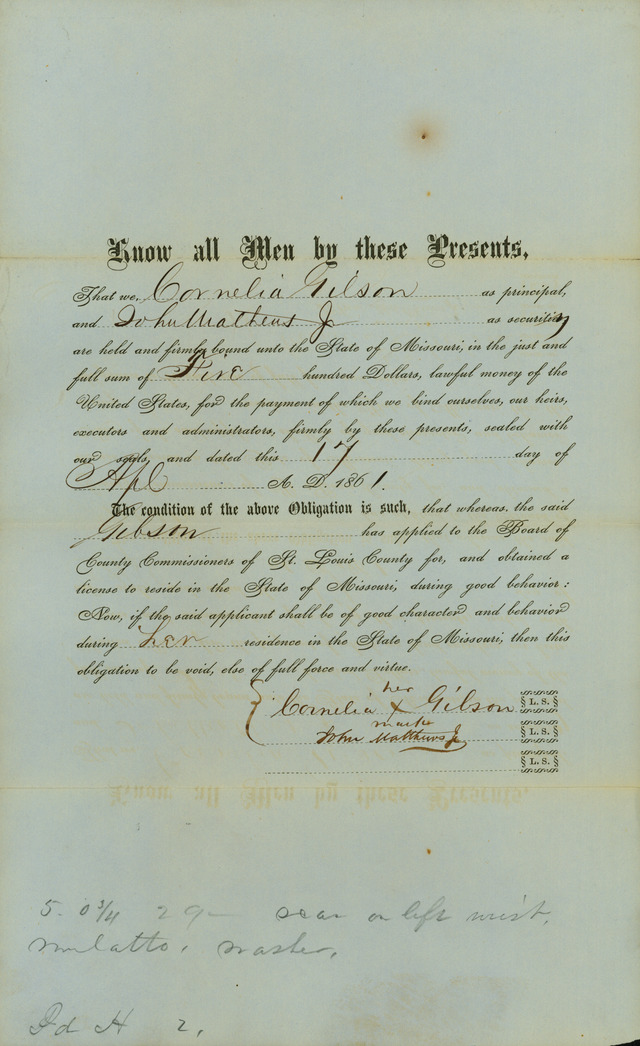 Know all Men by these Presents,
That we, Cornelia Gibson as principal,
and John Mathews Jr as security
are held and firmly bound unto the State of Missouri, in the just and
full sum of Five hundred Dollars, lawful money of the
United States, for the payment of which we bind ourselves, our heirs,
executors and administrators, firmly by these presents, sealed with
our seals, and dated this 17 day of
Apl A. D. 1861.
The condition of the above Obligation is such, that whereas, the said
Gibson has applied to the Board of
County Commissioners of St. Louis County for, and obtained a
license to reside in the State of Missouri, during good behavior:
Now, if the said applicant shall be of good character and behavior
during her residence in the State of Missouri, then this
obligation to be void, else of full force and virtue.
her
Cornelia X Gibson § L. S. §
mark
John Matthews Jr § L. S. §
§ L. S. §
5. 0 3/4 29 scar on left wrist,
mulatto. washer.
2.